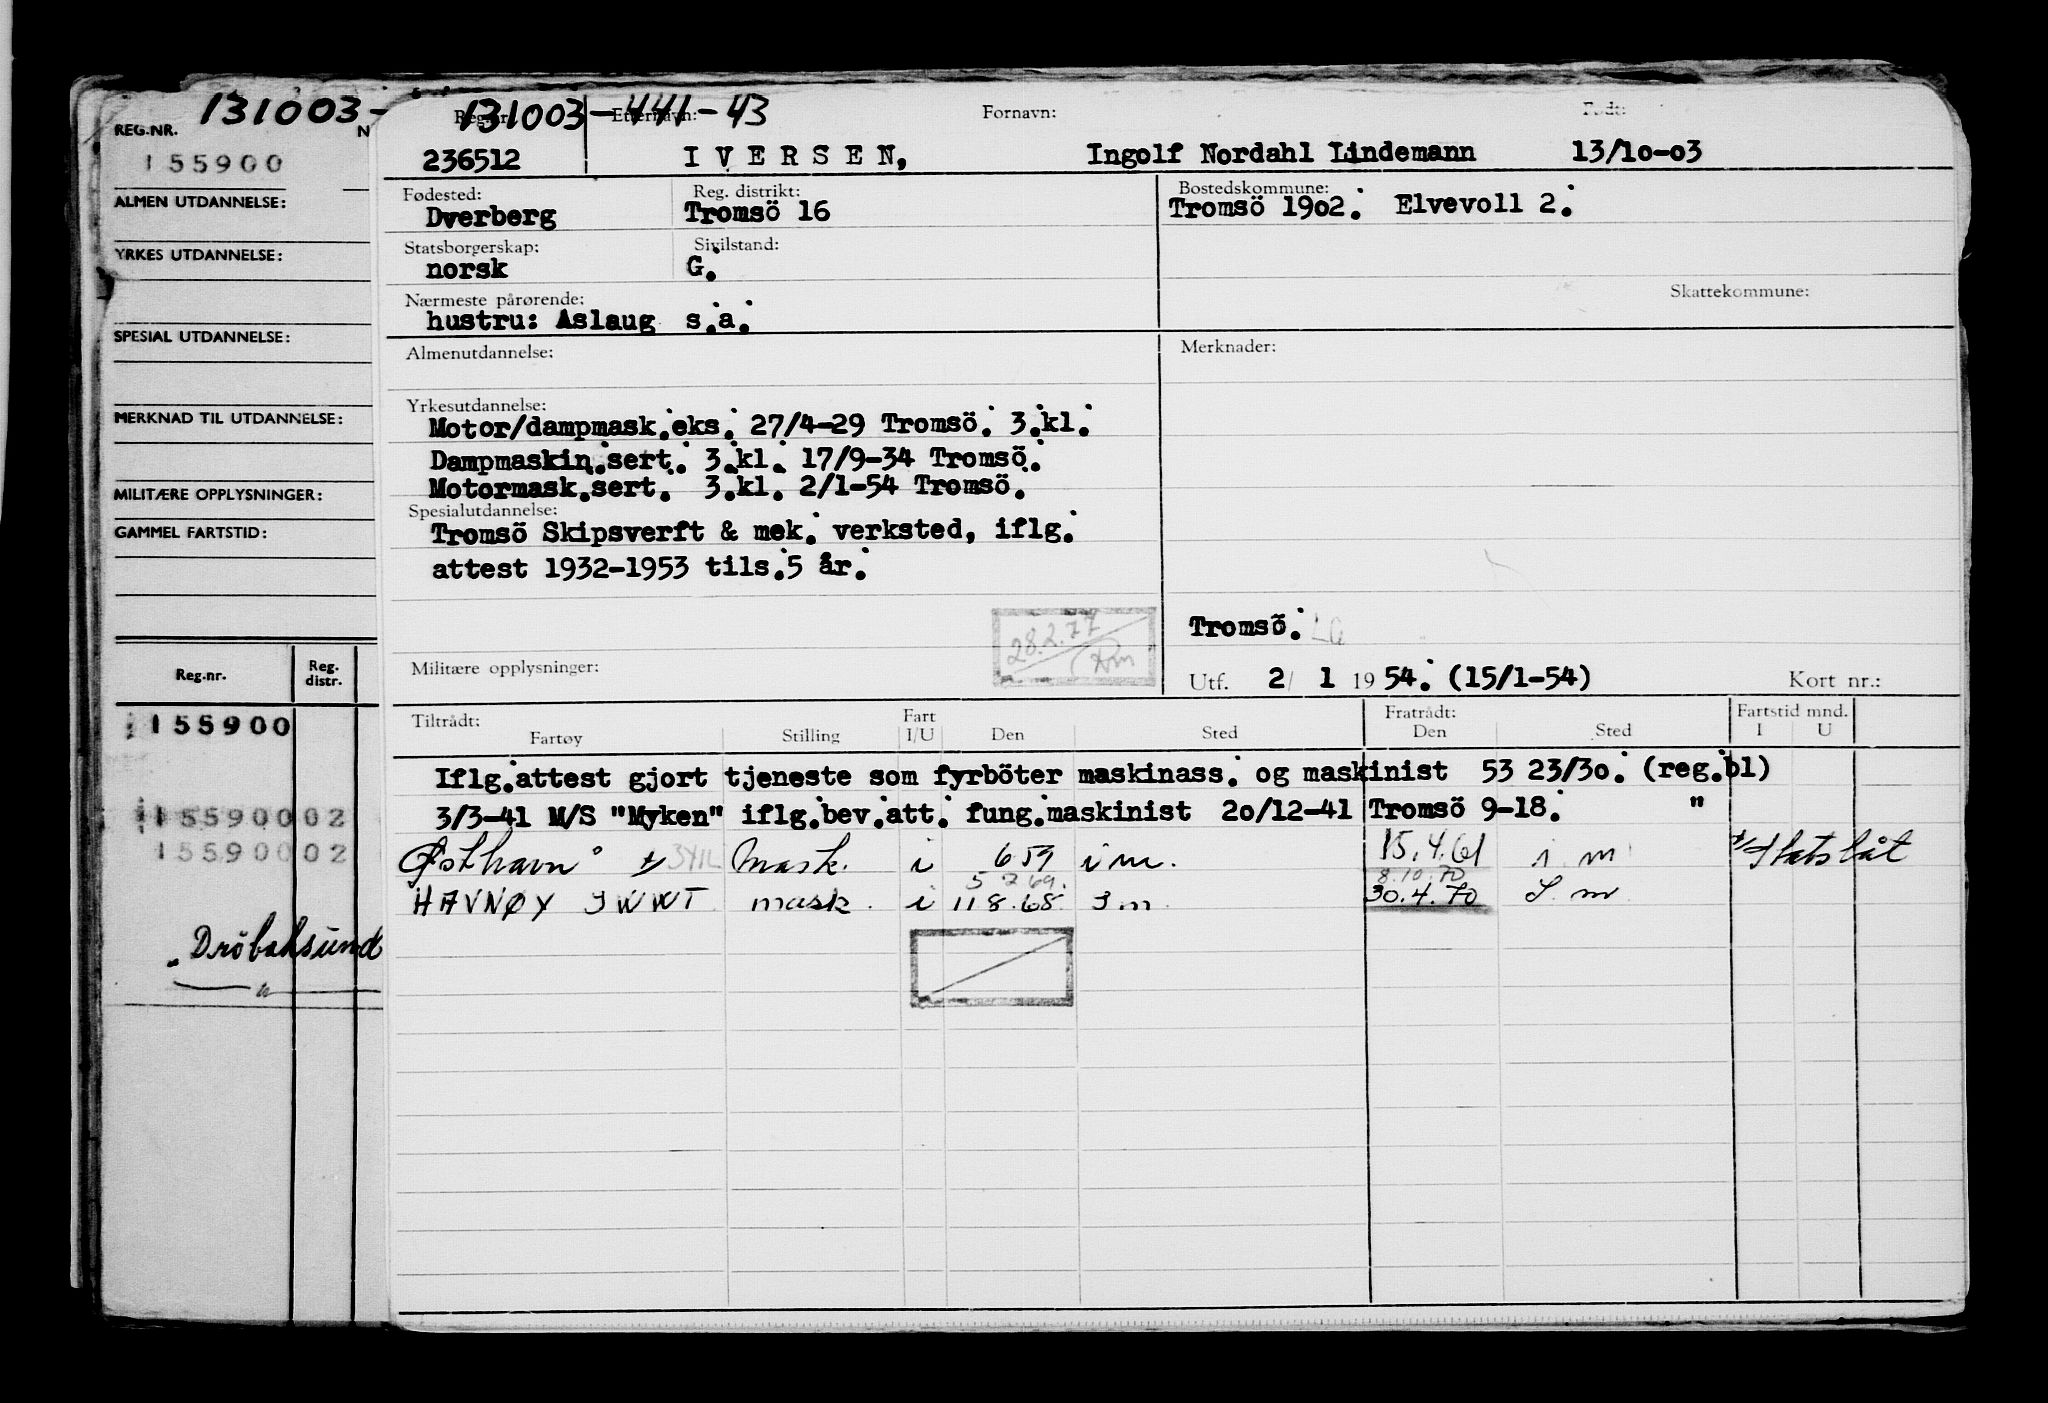 REG.NR. 131003- N
155900
ALMEN UTDANNELSE:
YRKES UTDANNELSE:
SPESIAL UTDANNELSE:
MERKNAD TIL UTDANNELSE:
MILITÆRE OPPLYSNINGER:
GAMMEL FARTSTID:
Reg.nr. Reg. distr.
155900
155900 02
155900 02
Drøbaksund
131003-441-43
Reg.nr. Etternavn: Fornavn: Født:
236512 IVERSEN, Ingolf Nordahl Lindemann 13/10-03
Fødested: Reg. distrikt: Bostedskommune:
Dverberg Tromsö 16 Tromsö 1902. Elvevoll 2.
Statsborgerskap: Sivilstand:
norsk G.
Nærmeste pårørende: Skattekommune:
hustru: Aslaug s.a.
Almenutdannelse: Merknader:
Yrkesutdannelse:
Motor/dampmask.eks. 27/4-29 Tromsö. 3.kl.
Dampmaskin.sert. 3.kl. 17/9-34 Tromsö.
Motormask.sert. 3.kl. 2/1-54 Tromsö.
Spesialutdannelse:
Tromsö Skipsverft & mek. verksted, iflg.
attest 1932-1953 tils.5 år.
28.2.77
Tromsö.
Militære opplysninger: Utf. 2/ 1 1954. (15/1-54) Kort nr.:
Tiltrådt: Fart Fratrådt: Fartstid mnd.
Fartøy Stilling I/U Den Sted Den Sted I U
Iflg.attest gjort tjeneste som fyrböter maskinass. og maskinist 53 23/30. (reg.bl)
3/3-41 M/S "Myken" iflg.bev.att. fung.maskinist 20/12-41 Tromsö 9-18. "
Østhavn x) 3YIL Mask. i 6 59 i m. 15.4.61 i m x) Statsbåt
5 2 69. 8.10.70
HAVNØY JWWT mask. i 11 8.68. I m. 30.4.70 I m